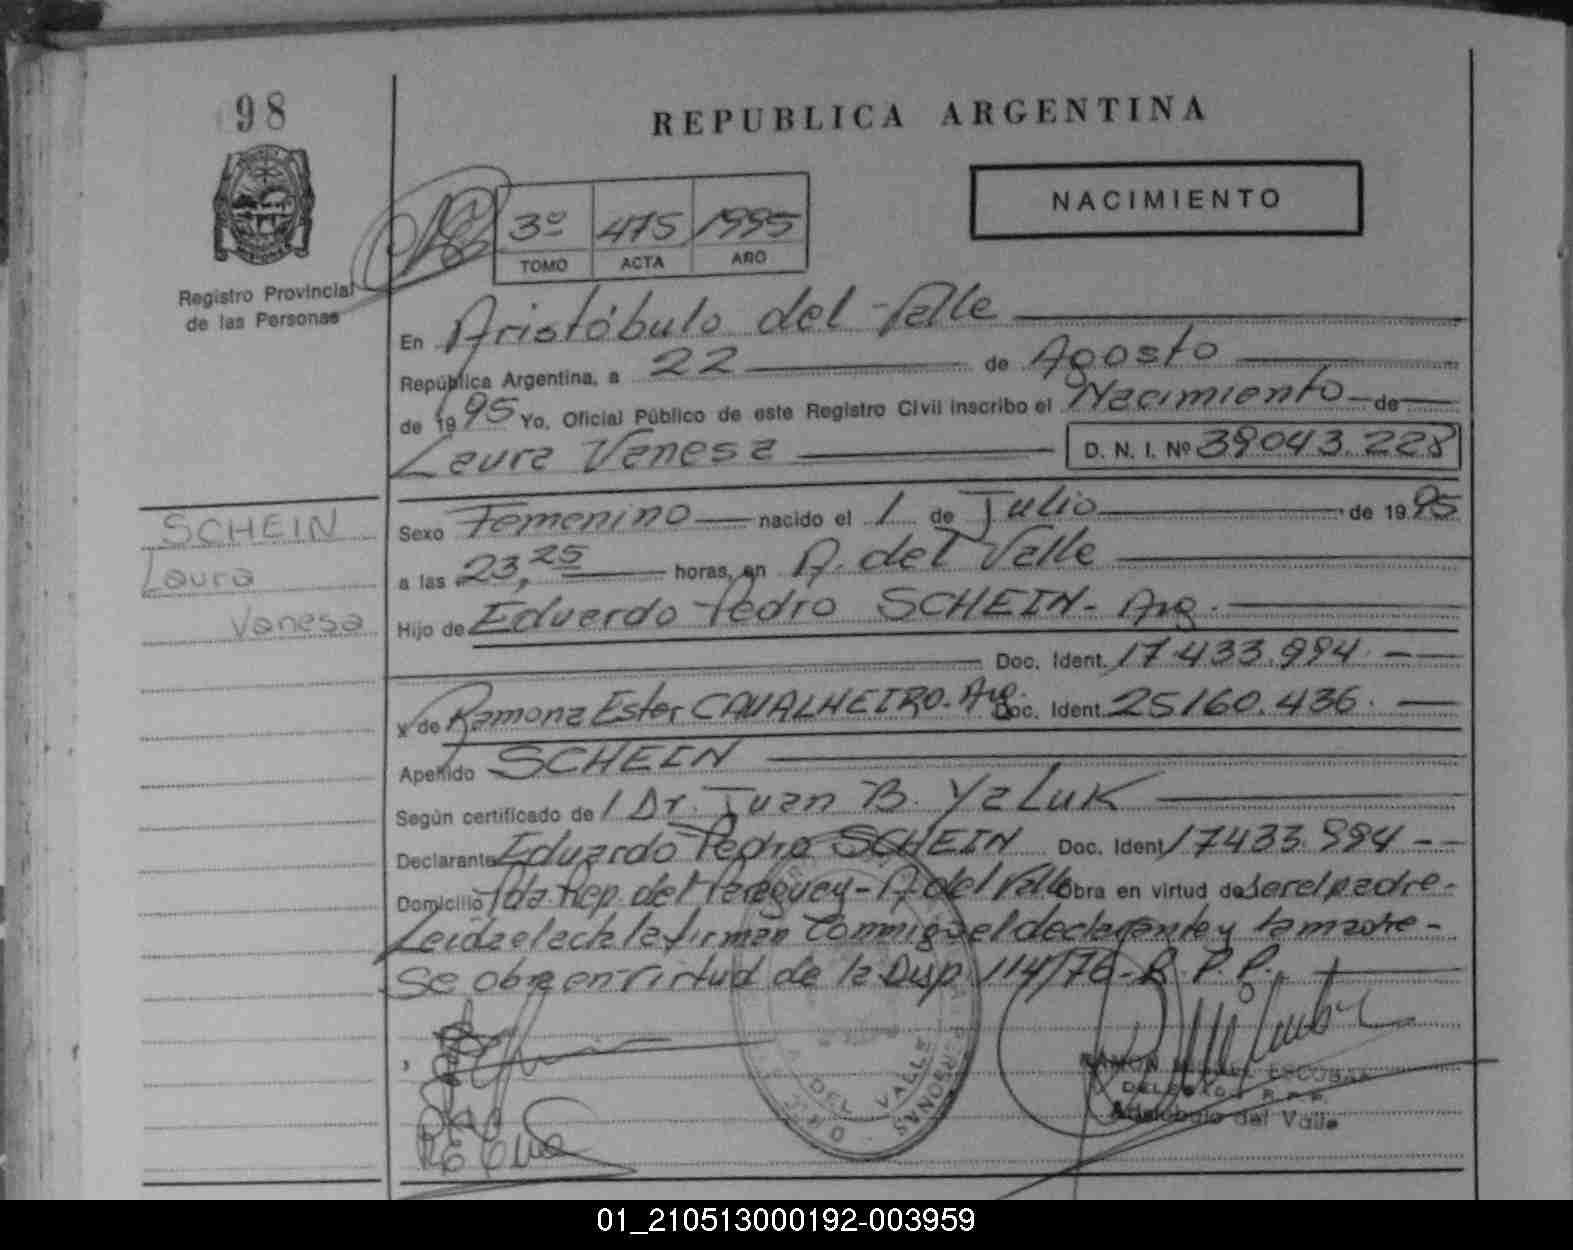 98
REPUBLICA ARGENTINA
NACIMIENTO
3º 475 1995
TOMO ACTA AÑO
Registro Provincial
de las Personas
En Aristóbulo del Valle
República Argentina, a 22 de Agosto
de 1995 Yo, Oficial Público de este Registro Civil inscribo el Nacimiento de
Laura Vanesa D. N. I. Nº 39043.228
SCHEIN
Laura
Vanesa
Sexo Femenino nacido el 1 de Julio de 1995
a las 23,25 horas, en A. del Valle
Hijo de Eduardo Pedro SCHEIN- Arg.
Doc. Ident. 17.433.994
y de Ramona Ester CAVALHEIRO- Arg. Doc. Ident. 25160.436.
Apellido SCHEIN
Según certificado de l Dr. Juan B. Yaluk
Declarante Eduardo Pedro SCHEIN Doc. Ident 17433.994
Domicilio Pda. Rep. del Paraguay- A. del Valle Obra en virtud de ser el padre-
Leida el acta la firman Conmigo el declarante y la madre-
Se obra en virtud de la Disp. 114/76- R. P. P.
DEL VALLE
PERSONAS
RAMON ESCOBAR
DELEGADO R.P.P.
Aristóbulo del Valle
01_210513000192-003959